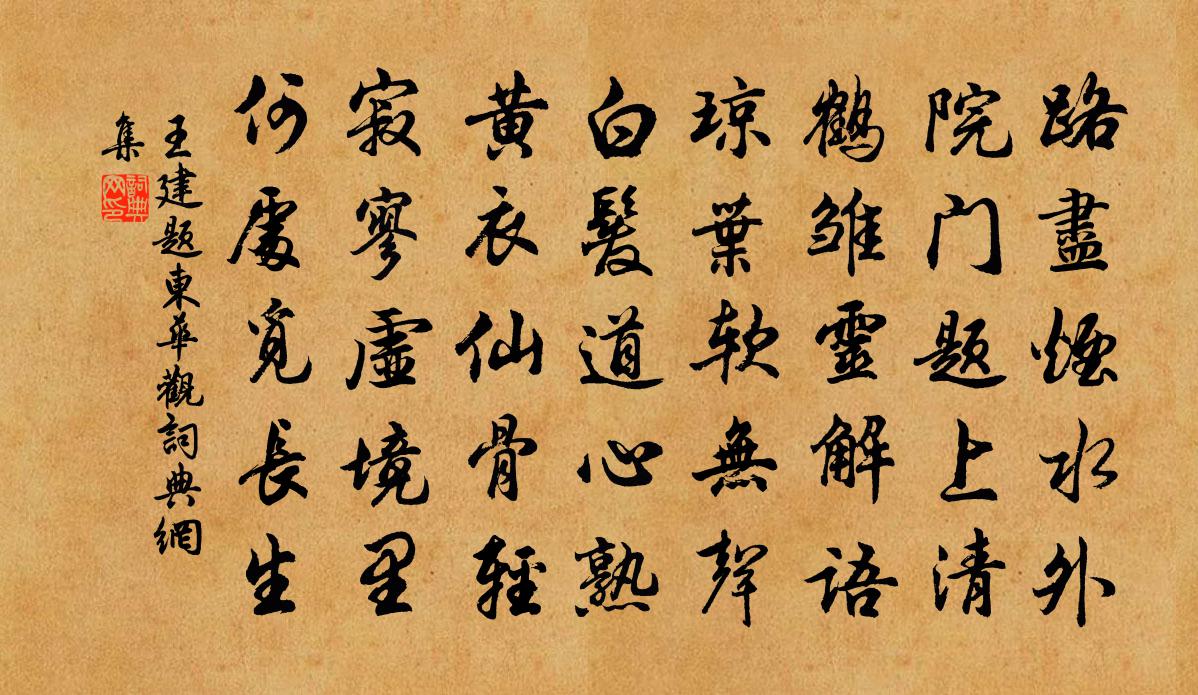 路盡煙水外
院门題上清
鶴雛靈解語
琼葉軟無聲
白髮道心熟
黄衣仙骨輕
寂寥虛境里
何處覓長生
王建題東華觀詞典網
集
詞典网印